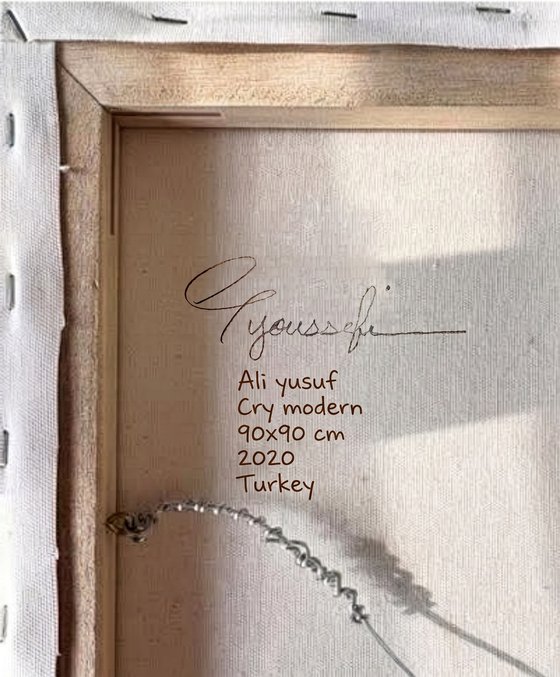 Youssefi
Ali yusuf
Cry modern
90x90 cm
2020
Turkey